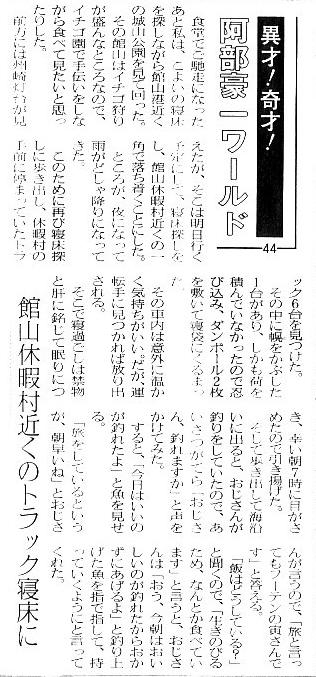 異才!奇才!
阿部豪一ワールド
44
食堂でご馳走になった
あと私は、こよいの寝床
を探しながら館山港近く
の城山公園を見て回った。
その館山はイチゴ狩り
が盛んなところなので、
イチゴ園で手伝いをしな
がら食べて見たいと思っ
たりした。
前方には州崎灯台が見
えたが、そこは明日行く
予定にして、寝床探しを
し、館山休暇村近くの一
角で落ち着くことにした。
ところが、夜になって
雨がどしゃ降りになって
きた。
このために再び寝床探
しに歩き出し、休暇村の
手前に停まっていたトラ
ック6台を見つけた。
その中に幌をかぶした
1台があり、しかも荷を
積んでいなかったので忍
び込み、ダンボール2枚
を敷いて寝袋にくるまっ
た。
その車内は意外に温か
く気持ちがいい。だが運
転手に見つかれば放り出
される。
そこで寝過ごしは禁物
と肝に銘じて眠りにつ
き、幸い朝7時に目がさ
めたので引き揚げた。
そして歩き出して海沿
いに出ると、おじさんが
釣りをしていたので、あ
いさつがてら「おじさ
ん、釣れますか」と声を
かけてみた。
すると、「今日はいいの
が釣れたよ」と魚を見せ
る。
「旅をしているという
が、朝早いね」とおじさ
んが言うので、「旅と言っ
てもフーテンの寅さんで
す」と答える。
「飯はどうしている?」
と聞くので、「生きのびる
ため、なんとか食べてい
ます」と言うと、おじさ
んは「おう、今朝はおい
しいのが釣れたからおか
ずにあげるよ」と釣り上
げた魚を指で指して、持
っていくようにと言って
くれた。
館山休暇村近くのトラック寝床に